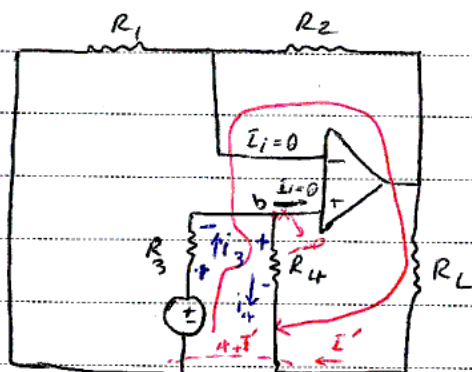 R1 R2
Ii=0
b Ii=0
− +
R3 − + i3 + − i4 R4 RL
±
I' I'